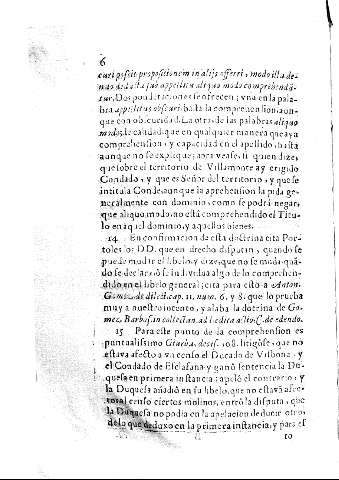 6
curi possit propositionem in alijs offerri, modo illa de-
nuo deducta sub appellatu aliquo modo comprehendā-
tur. Dos ponderaciones se ofrecen; vna en la pala-
bra appellatus obscuri: basta la comprehension, aun-
que con obscuridad. La otra de las palabras aliquo
modo, le calidad, que en qualquier manera que aya
comprehension, y capacidad en el apellido, basta
aunque no se explique; aora vease, si quien dize,
que sobre el territorio de Villamonte ay erigido
Condado, y que es Señor del territorio, y que se
intitula Conde, aunque la aprehension la pida ge-
neralmente con dominio, como se podrá negar,
que aliquo modo, no está comprehendido el Titu-
lo en aquel dominio, y aquellos bienes.
14 En confirmacion de esta doctrina cita Por-
toles los DD. que en derecho disputan, quando se
puede mudar el libelo, y dize, que no se muda quā-
do se declara, ó se individua algo de lo comprehen-
dido en el libelo general; cita para esto a Anton.
Gomez de delict. cap. 11. num. 6. y 8. que lo prueba
muy a nuestro intento, y alaba la dotrina de Go-
mez, Barbosa in collectan. ad l. edita actio, C. de edendo.
15 Para este punto de la comprehension es
puntualissimo Giurba, decis. 108. litigose, que no
estava afecto a vn censo el Ducado de Visbona, y
el Condado de Esclafana; y ganó sentencia la Du-
quesa en primera instancia; apeló el contrario, y
la Duquesa añadió en su libelo, que no estavā afec-
tos al censo ciertos molinos, entró la disputa, que
la Duquesa no podia en la apelacion deducir otro,
de lo que deduxo en la primera instancia, y para es
to